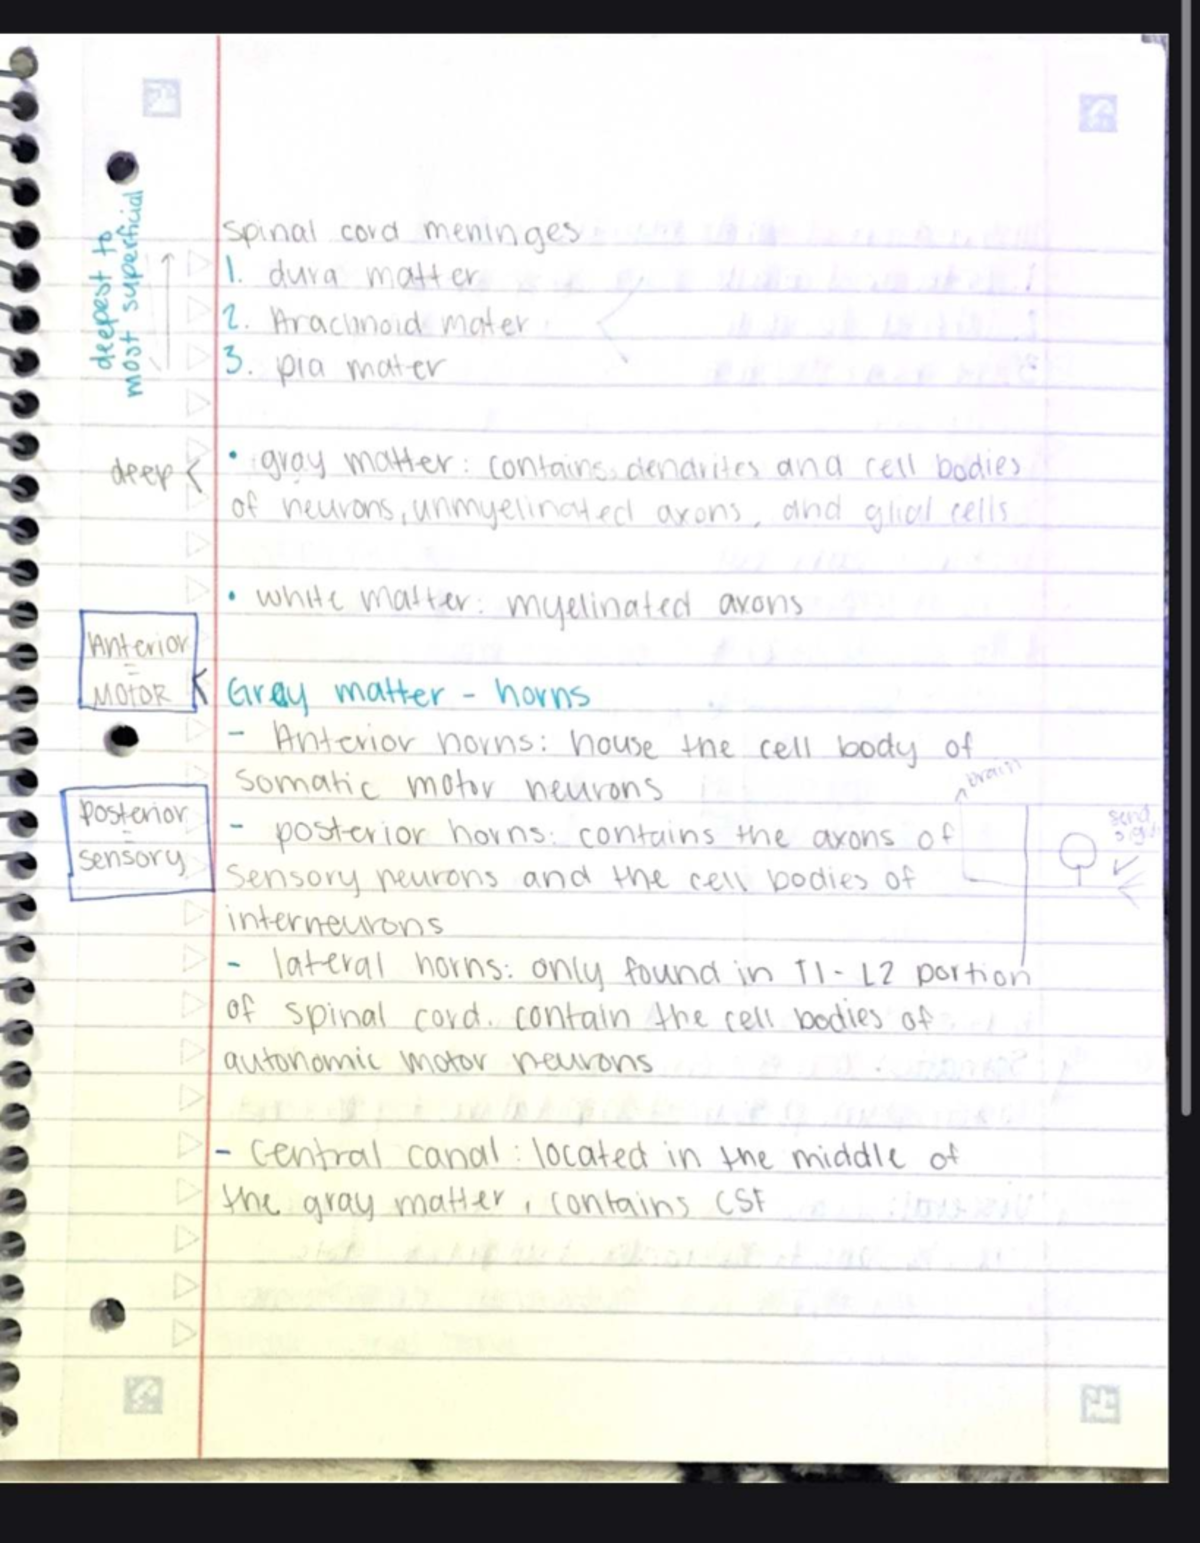 deepest to
most superficial
spinal cord meninges
1. dura matter
2. Arachnoid mater
3. pia mater
deep
• gray matter: contains dendrites and cell bodies
of neurons, unmyelinated axons, and glial cells
• white matter: myelinated axons
Anterior
=
MOTOR
Gray matter - horns
- Anterior horns: house the cell body of
somatic motor neurons
brain
posterior
=
sensory
- posterior horns: contains the axons of
sensory neurons and the cell bodies of
interneurons
send
- lateral horns: only found in T1-L2 portion
of spinal cord. contain the cell bodies of
autonomic motor neurons
- central canal: located in the middle of
the gray matter, contains CSF